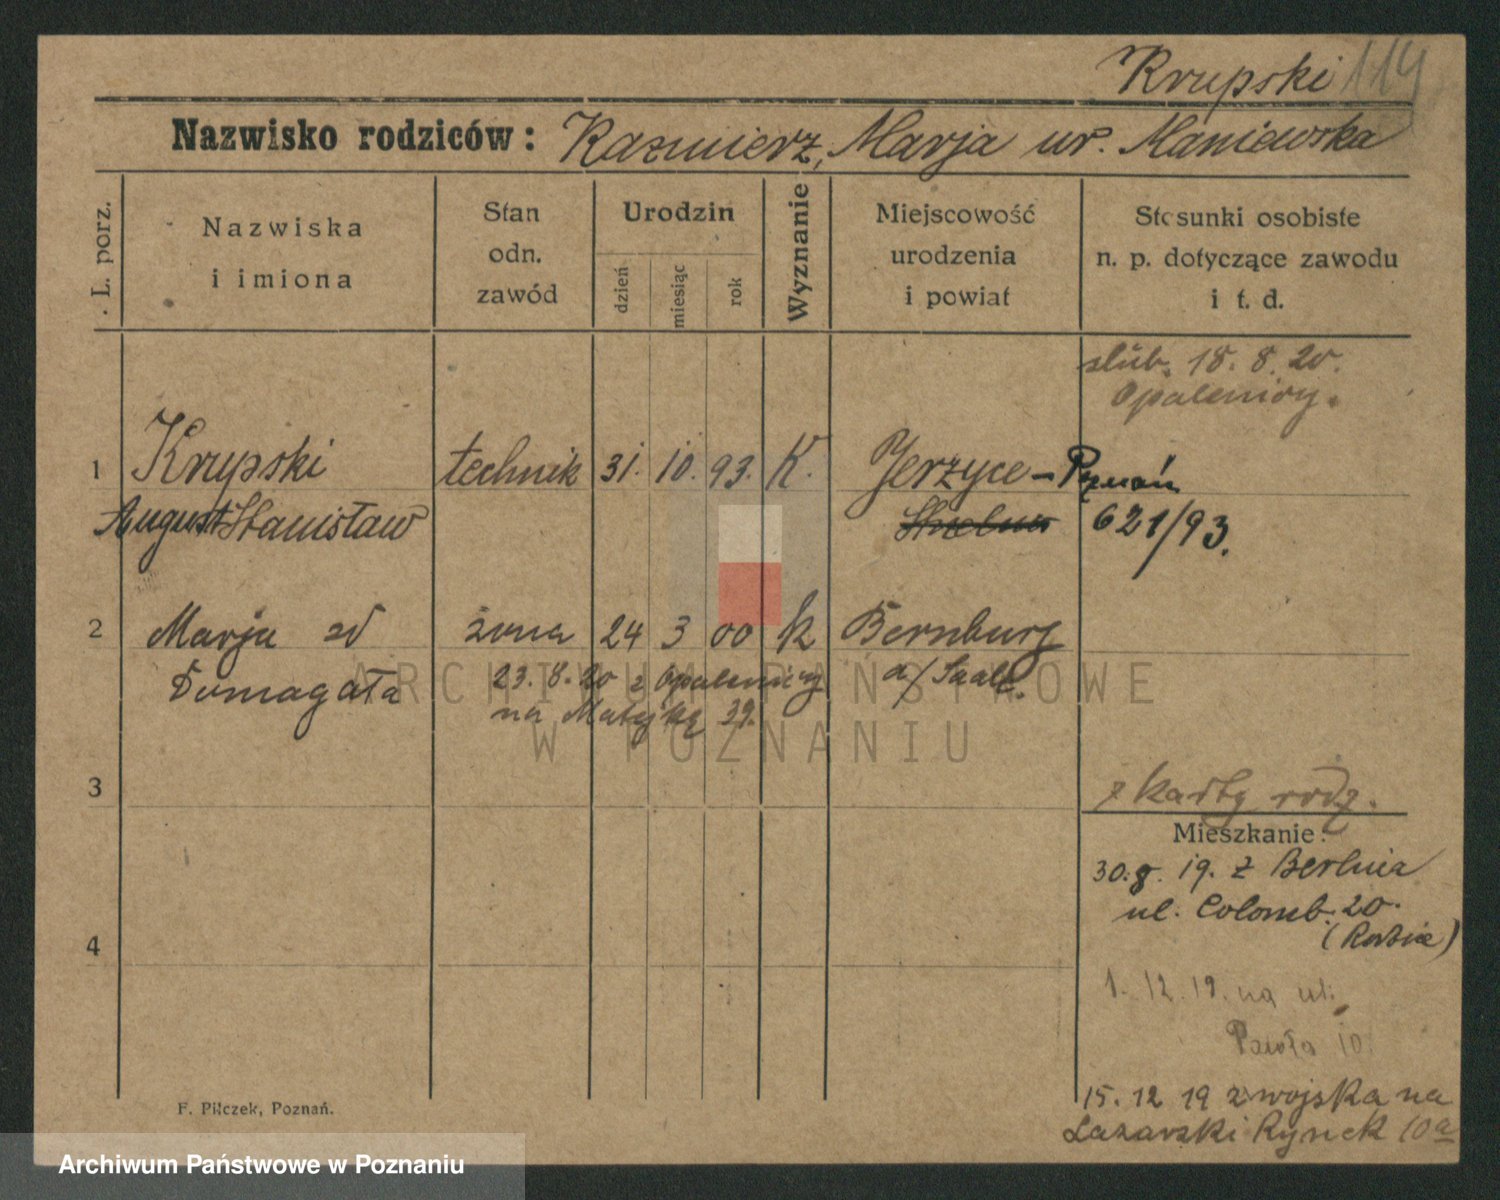 Krupski 119
Nazwisko rodziców: Kazmierz, Marja ur. Maniewska
L. porz.
Nazwiska
i imiona
Stan
odn.
zawód
Urodzin
dzień
miesiąc
rok
Wyznanie
Miejscowość
urodzenia
i powiat
Stosunki osobiste
n. p. dotyczące zawodu
i t. d.
ślub. 18. 8. 20.
Opalenicy.
1 Krupski technik 31. 10. 93. K. Jerzyce - Poznań
August Stanisław 621/93.
2 Marja zd żona 24 3 00 k Bernburg
Domagała a/Saale.
23. 8. 20 z Opalenicy
na Matejki 39.
ARCHIWUM PAŃSTWOWE
W POZNANIU
3
z karty rodz.
Mieszkanie:
30. 8. 19. z Berlina
ul. Colomb. 20.
4
1. 12. 19. na ul.
Pawła 10
15. 12 19 z wojska na
Lazarski Rynek 10a
F. Pilczek, Poznań.
Archiwum Państwowe w Poznaniu